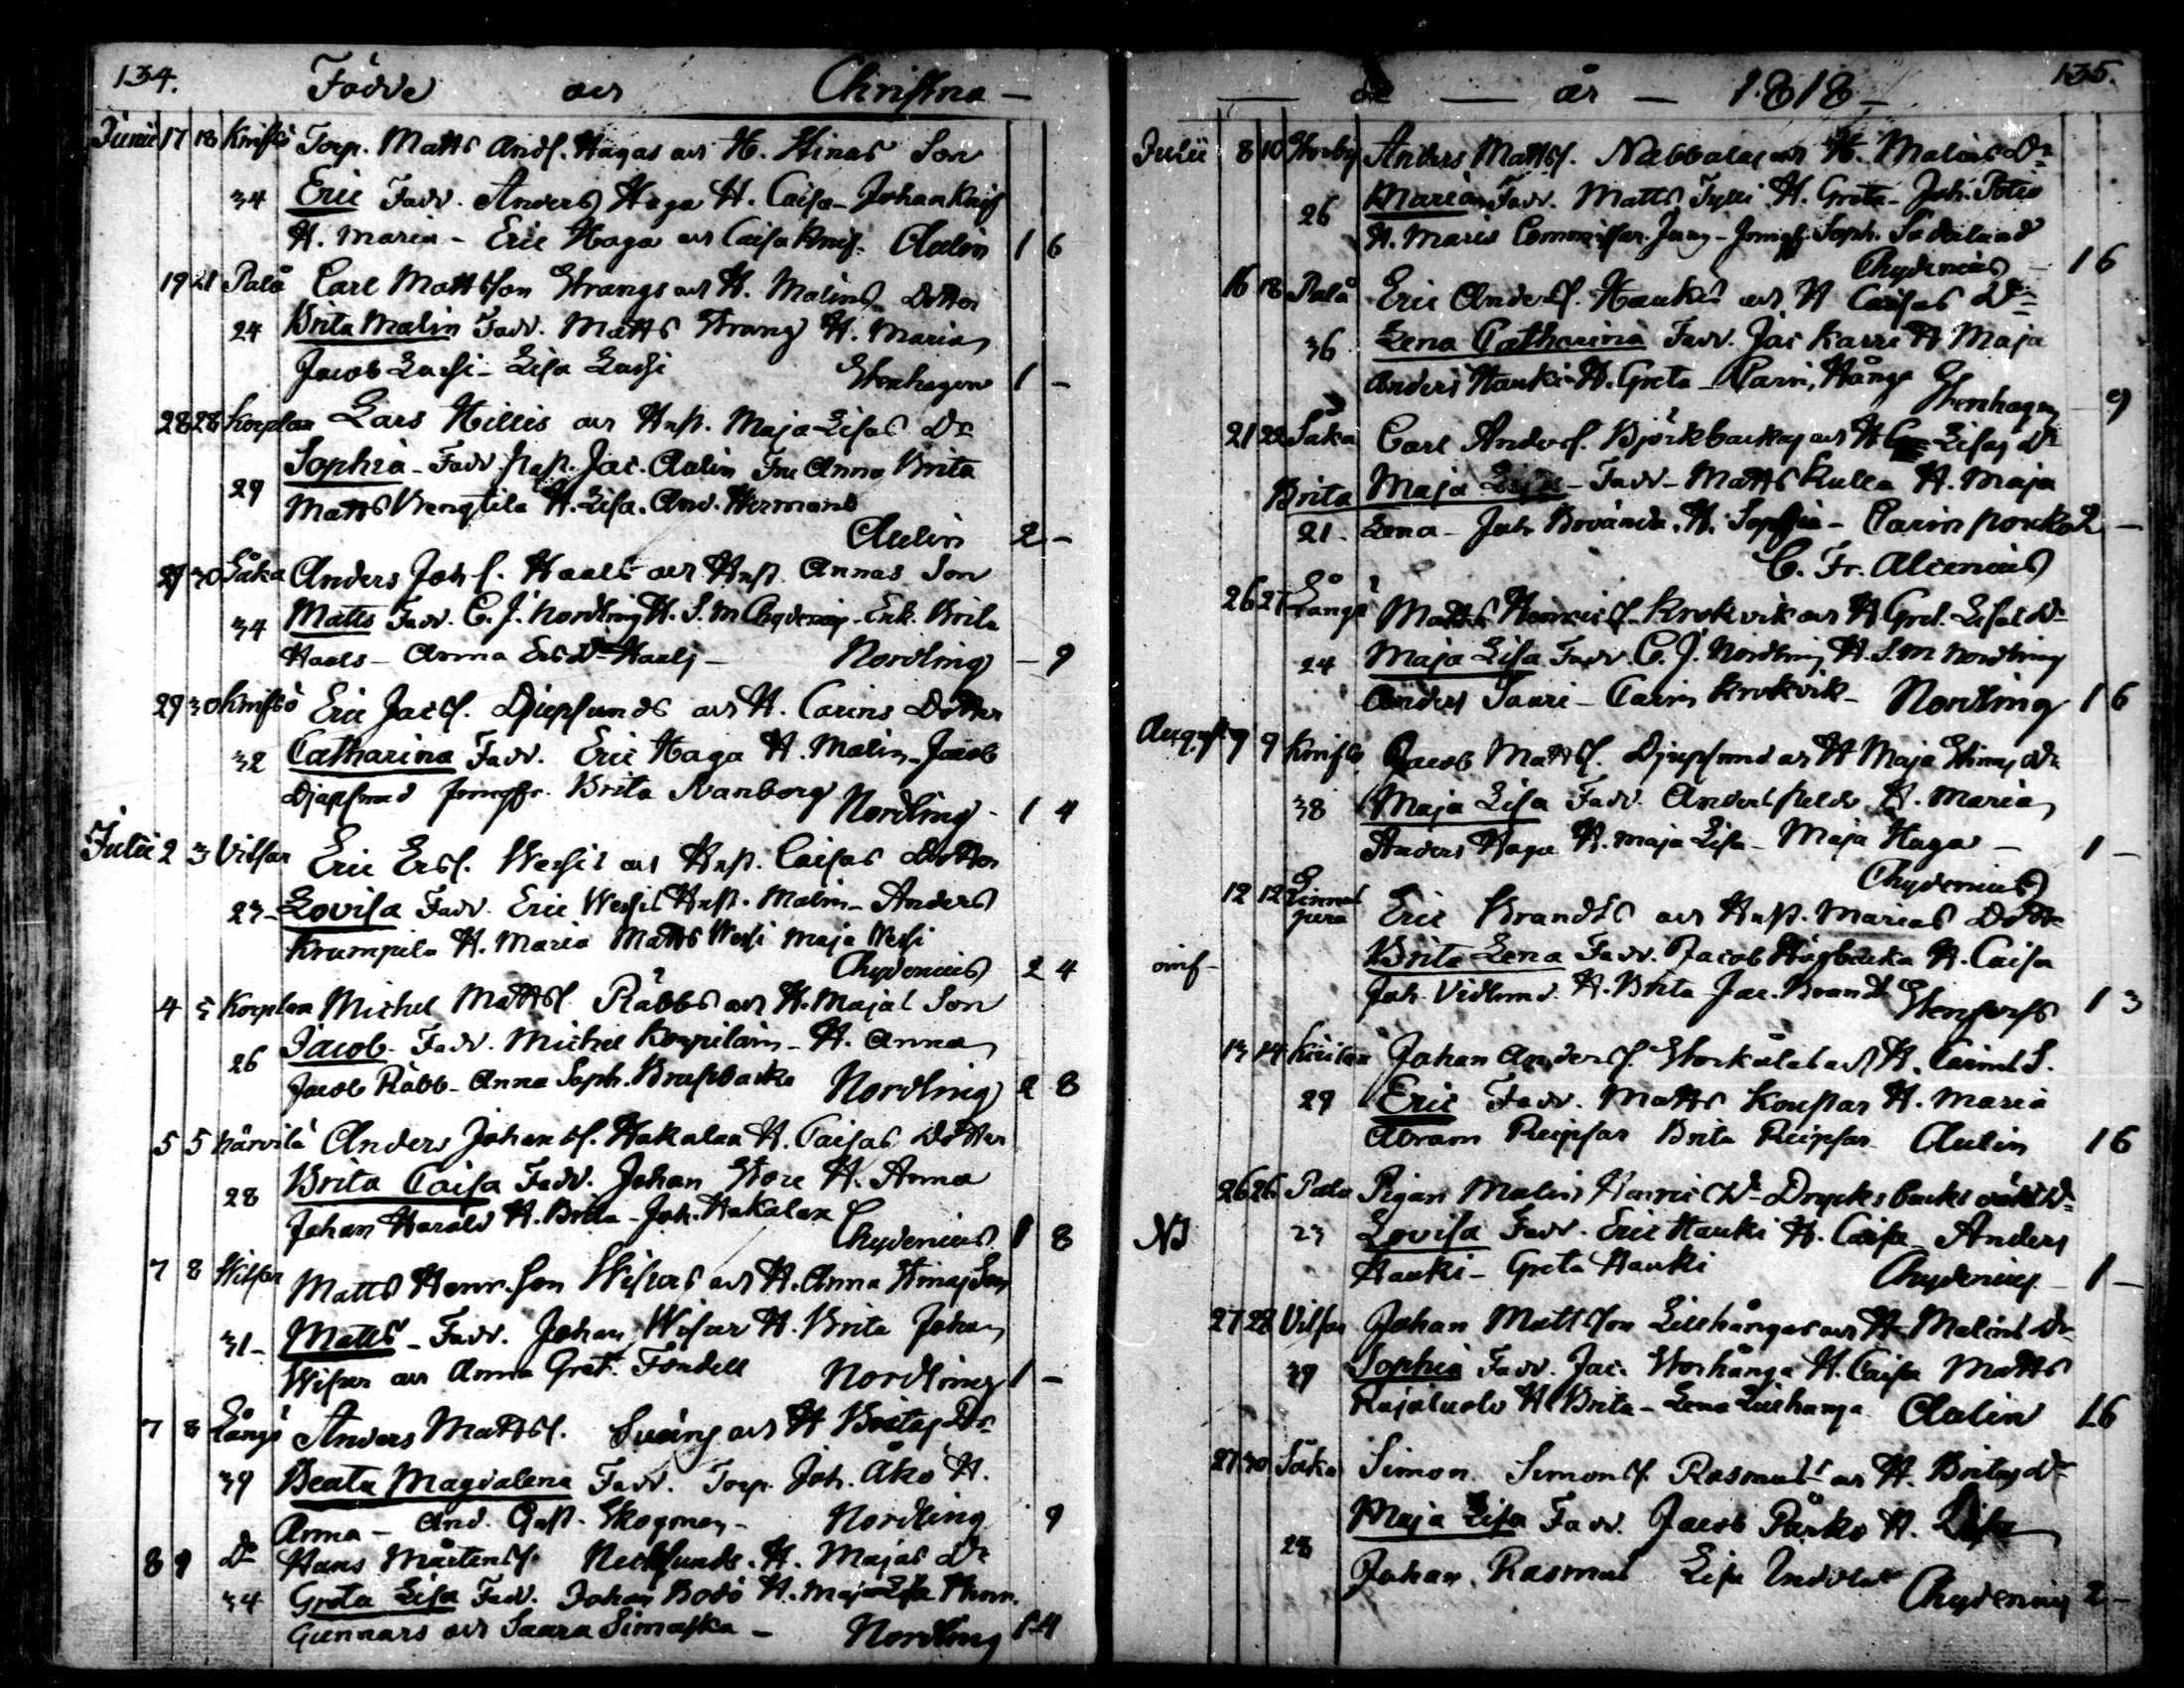 134. Födde och Christna —
Junii 17 18 Knifsö Torp. Matts Ands. Hagas och H. Stinas Son
34 Eric Fadd. Anders Haga H. Caisa - Johan Knif
H. Maria - Eric Haga och Caisa Knif. Aulin 1 6
19 21 Palå Carl Mattsson Strangs och H. Malins Dotter
24 Brita Malin Fadd. Matts Strang H. Maria
Jacob Lassi - Lisa Lassi Stenhagen 1 -
28 28 Korplax Lars Hillis och Hust. Maja Lisas Dr
Sophia - Fadd. Past. Jac. Aulin Fru Anna Brita
29 Matts Bengtila H. Lisa. And. Hermans
Aulin 2 -
29 30 Såka Anders Johs. Haals och Hust. Annas Son
34 Matts Fadd. C. J. Nordling H. S. M. Chydenius - Enk. Brita
Haals - Anna Ersdr Haals - Nordling - 9
29 30 Knifsö Eric Jacss. Djupsunds och H. Carins Dotter
32 Catharina Fadd. Eric Haga H. Malin - Jacob
Djupsund Jungfr. Brita Nanborg Nordling - 1 4
Julii 2 3 Vitsar Eric Erss. Wessis och Hust. Caisas Dotter
23 - Lovisa Fadd. Eric Wessis Hust. Malin - Anders
Krumpila H. Maria Matts Wessi Maja Wessi
Chydenius 2 4
4 5 Korplax Michel Mattss. Räbbs och H. Majas Son
26 Jacob - Fadd. Michel Korpilain - H. Anna
Jacob Räbb - Anna Soph. Brusbacka Nordling 2 8
5 5 Härvilä Anders Johanss. Hakalax H. Caisas Dotter
28 Brita Caisa Fadd. Johan Store H. Anna
Johan Harald H. Brita - Joh. Hakalax
Chydenius 1 8
7 8 Vitsar Matts Henr. Son Wisurs och H. Anna Stinas Son
31 - Matts - Fadd. Johan Wisur H. Brita Johan
Wisur och Anna Gret. Fondell Nordling 1 -
7 8 Långö Anders Mattss. Sveins och H Britas Dr
39 Beata Magdalena Fadd. Torp. Joh. Åkö H.
Anna - And. Gust. Skogman - Nordling 9
8 9 Do Hans Mårtenss. Neckssunds. H. Majas Dr
34 Greta Lisa Fadd. Johan Bodö H. Maja Lisa Thom.
Gunnars och Saara Simaska - Nordling 1 4
— — år — 1818 — 135.
Julii 8 10 Storby Anders Mattss. Nabbalas och H. Malins Dr
26 Maria Fadd. Matts Fylli H. Greta - Joh. Potio
H. Maria Commissar. Jung - Jungf. Soph. Söderlund
Chydenius - 1 6
16 18 Palå Eric Anderss. Haukis och H Caisas Dr
36 Lena Catharina Fadd. Jac Karri H Maja
Anders Hauki H. Greta - Carin, Hånga
Stenhagen - 9
21 22 Såka Carl Anderss. Björkbackas och H Lisas Dr
Brita Maja Lisa - Fadd - Matts Kulla H. Maja
21 - Lena - Joh H. Sophia - Carin Ponko 2 -
C. Fr. Alcenius
26 27 Långö Matts Henricss. Krokvik och H Gret. Lisas Dr
24 Maja Lisa Fadd. C. J. Nordling H. S. M Nordling
Anders Saari - Carin Krokvik - Nordling 1 6
August 9 9 Knifsö Jacob Mattss. Djupsund och H Maja Stinas Dr
38 Maja Lisa Fadd. Anders H. Maria
Anders Haga H. Maja Lisa - Maja Haga - 1 -
Chydenius
12 12 Linnusperä Eric Brandts och Hust. Marias Dotter
Brita Lena Fadd. Jacob Högbacka H. Caisa
Joh. Vidlund. H. Brita Jac. Brandt Stenfors 1 3
13 14 Kiilax Johan Anderss. Storkålas och H. Carins S.
29 Eric Fadd. Matts Koustar H. Maria
Abram Reipsar Brita Reipsar Aulin 1 6
26 26 Palo Pigan Malin Henricsdr Drycksbacks oäkta Dr
NB 23 Lovisa Fadd. Eric Hauki H. Caisa Anders
Hauki - Greta Hauki Chydenius - 1 -
27 28 Vitsar Johan Mattsson Lillhångas och H Malins Dr
39 Sophia Fadd. Jac. Storhånga H. Caisa Matts
Rajaluolo H Brita - Lena Lillhånga Aulin 1 6
27 30 Såka Simon Simonss. Rasmus och H. Britas Dr
Maja Lisa Fadd. Jacob Pärko H. Lisa
28 Johan Rasmus Lisa Indola
Chydenius 2 -